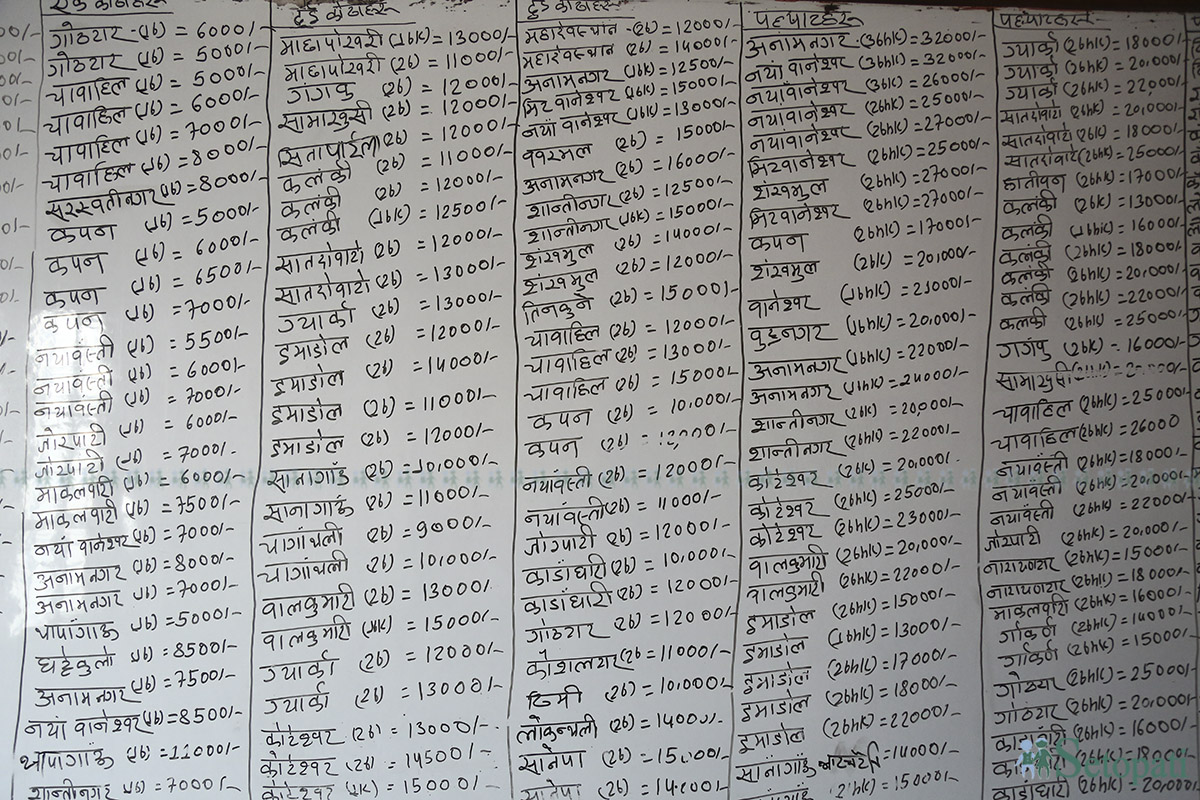 एक कोठाहरू
गोठाटार (1b) = 6000/-
गोठाटार (1b) = 5000/-
चावाहिल (1b) = 5000/-
चावाहिल (1b) = 6000/-
चावाहिल (1b) = 7000/-
चावाहिल (1b) = 8000/-
सरस्वतीनगर (1b) = 8000/-
कपन (1b) = 5000/-
कपन (1b) = 6000/-
कपन (1b) = 6500/-
कपन (1b) = 7000/-
नयाँवस्ती (1b) = 5500/-
नयाँवस्ती (1b) = 6000/-
नयाँवस्ती (1b) = 7000/-
जोरपाटी (1b) = 6000/-
जोरपाटी (1b) = 7000/-
माकलवारी (1b) = 6000/-
माकलवारी (1b) = 7500/-
नयाँ वानेश्वर (1b) = 7000/-
अनामनगर (1b) = 8000/-
अनामनगर (1b) = 7000/-
थापागाउँ (1b) = 5000/-
घट्टेकुलो (1b) = 8500/-
अनामनगर (1b) = 7500/-
नयाँ वानेश्वर (1b) = 8500/-
थापागाउँ (1b) = 11000/-
शान्तीनगर (1b) = 7000/-
दुई कोठाहरू
माछापोखरी (1bk) = 13000/-
माछापोखरी (2b) = 11000/-
गंगबु (2b) = 12000/-
सामाखुसी (2b) = 12000/-
सितापाईला (2b) = 12000/-
कलंकी (2b) = 11000/-
कलंकी (2b) = 12000/-
कलंकी (1bk) = 12500/-
सातदोवाटो (2b) = 12000/-
सातदोवाटो (2b) = 13000/-
ग्वार्को (2b) = 13000/-
इमाडोल (2b) = 12000/-
इमाडोल (2b) = 14000/-
इमाडोल (2b) = 11000/-
इमाडोल (2b) = 12000/-
सानागाउँ (2b) = 10,000/-
सानागाउँ (2b) = 11000/-
चागाँथली (2b) = 9000/-
चागाथली (2b) = 10,000/-
वालकुमारी (2b) = 13000/-
वालकुमारी (1bk) = 15000/-
ग्वार्को (2b) = 12000/-
ग्वार्को (2b) = 13000/-
कोटेश्वर (2b) = 13000/-
कोटेश्वर (2b) = 14500/-
कोटेश्वर (1bk) = 15000/-
दुई कोठाहरू
महादेवस्थान (2b) = 12000/-
महादेवस्थान (2b) = 14000/-
अनामनगर (1bk) = 12500/-
मिडवानेश्वर (1bk) = 15000/-
नयाँ वानेश्वर (1bk) = 13000/-
(2b) = 15000/-
अनामनगर (2b) = 16000/-
शान्तीनगर (2b) = 12500/-
शान्तीनगर (1bk) = 15000/-
शंखमुल (2b) = 14000/-
शंखमुल (2b) = 12000/-
तिनकुने (2b) = 15000/-
चावाहिल (2b) = 12000/-
चावाहिल (2b) = 13000/-
चावाहिल (2b) = 15000/-
कपन (2b) = 10,000/-
कपन (2b) = 12000/-
नयाँवस्ती (2b) = 12000/-
नयाँवस्ती (2b) = 11000/-
जोरपाटी (2b) = 12000/-
काडाँघारी (2b) = 10,000/-
काडाँघारी (2b) = 12000/-
गोठाटार (2b) = 12000/-
कौशलटार (2b = 11000/-
ठिमी (2b) = 10,000/-
लोकन्थली (2b) = 14000/-
सानेपा (2b) = 15,000/-
सानेपा (2b) = 14000/-
फ्ल्याटहरू
अनामनगर (3bhk) = 32000/-
नयाँ वानेश्वर (3bhk) = 32000/-
नयाँवानेश्वर (3bk) = 26000/-
नयाँवानेश्वर (2bhk) = 25000/-
नयाँवानेश्वर (2bhk) = 27000/-
मिडवानेश्वर (2bhk) = 25000/-
शंखमुल (2bhk) = 27000/-
मिडवानेश्वर (2bhk) = 27000/-
कपन (2bhk) = 17000/-
शंखमुल (2bk) = 20,000/-
वानेश्वर (1bhk) = 21000/-
वुद्धनगर (1bhk) = 20,000/-
अनामनगर (1bhk) = 22000/-
अनामनगर (1bhk) = 24000/-
शान्तीनगर (2bk) = 20,000/-
शान्तीनगर (2bhk) = 22000/-
कोटेश्वर (2bk) = 20,000/-
कोटेश्वर (2bhk) = 25000/-
कोटेश्वर (2bhk) = 23000/-
वालकुमारी (2bhk) = 20,000/-
वालकुमारी (2bhk) = 22000/-
इमाडोल (2bhk) = 15000/-
इमाडोल (1bhk) = 13000/-
इमाडोल (2bhk) = 17000/-
इमाडोल (2bhk) = 18000/-
इमाडोल (2bhk) = 22000/-
सानागाउँ = 14000/-
(2bhk) = 15000/-
फ्ल्याटहरू
ग्वार्को (2bhk) = 18000/-
ग्वार्को (2bhk) = 20,000/-
ग्वार्को (2bhk) = 22000/-
सातदोवाटो (2bhk) = 20,000/-
सातदोवाटो (2bk) = 18000/-
सातदोवाटो (2bhk) = 25000/-
हातीवन (2bhk) = 17000/-
कलंकी (2bk) = 13000/-
कलंकी (1bhk) = 16000/-
कलंकी (2bhk) = 18000/-
कलंकी (2bhk) = 20,000/-
कलंकी (2bhk) = 22000/-
कलंकी (2bhk) = 25000/-
गगंबु (2bk) = 16000/-
सामाखुसी
चावाहिल (2bhk) = 25000/-
चावाहिल (2bhk) = 26000
नयाँवस्ती (2bhk) = 18000/-
नयाँवस्ती (2bhk) = 20,000/-
नयाँवस्ती (2bhk) = 22000/-
जोरपाटी (2bhk) = 20,000/-
नारायणटार (2bhk) = 15000/-
नारायणटार (2bhk) = 18000/-
माकलवारी (2bhk) = 16000/-
गोकर्ण (2bhk) = 14000/-
गोकर्ण (2bhk) = 15000/-
गोठाटार (2bhk) = 25000/-
गोठाटार (2bhk) = 20,000/-
काडाँघारी (2bhk) = 16000/-
(2bhk) = 18000/-
काडाँघारी (2bhk) = 20,000/-
Setopati